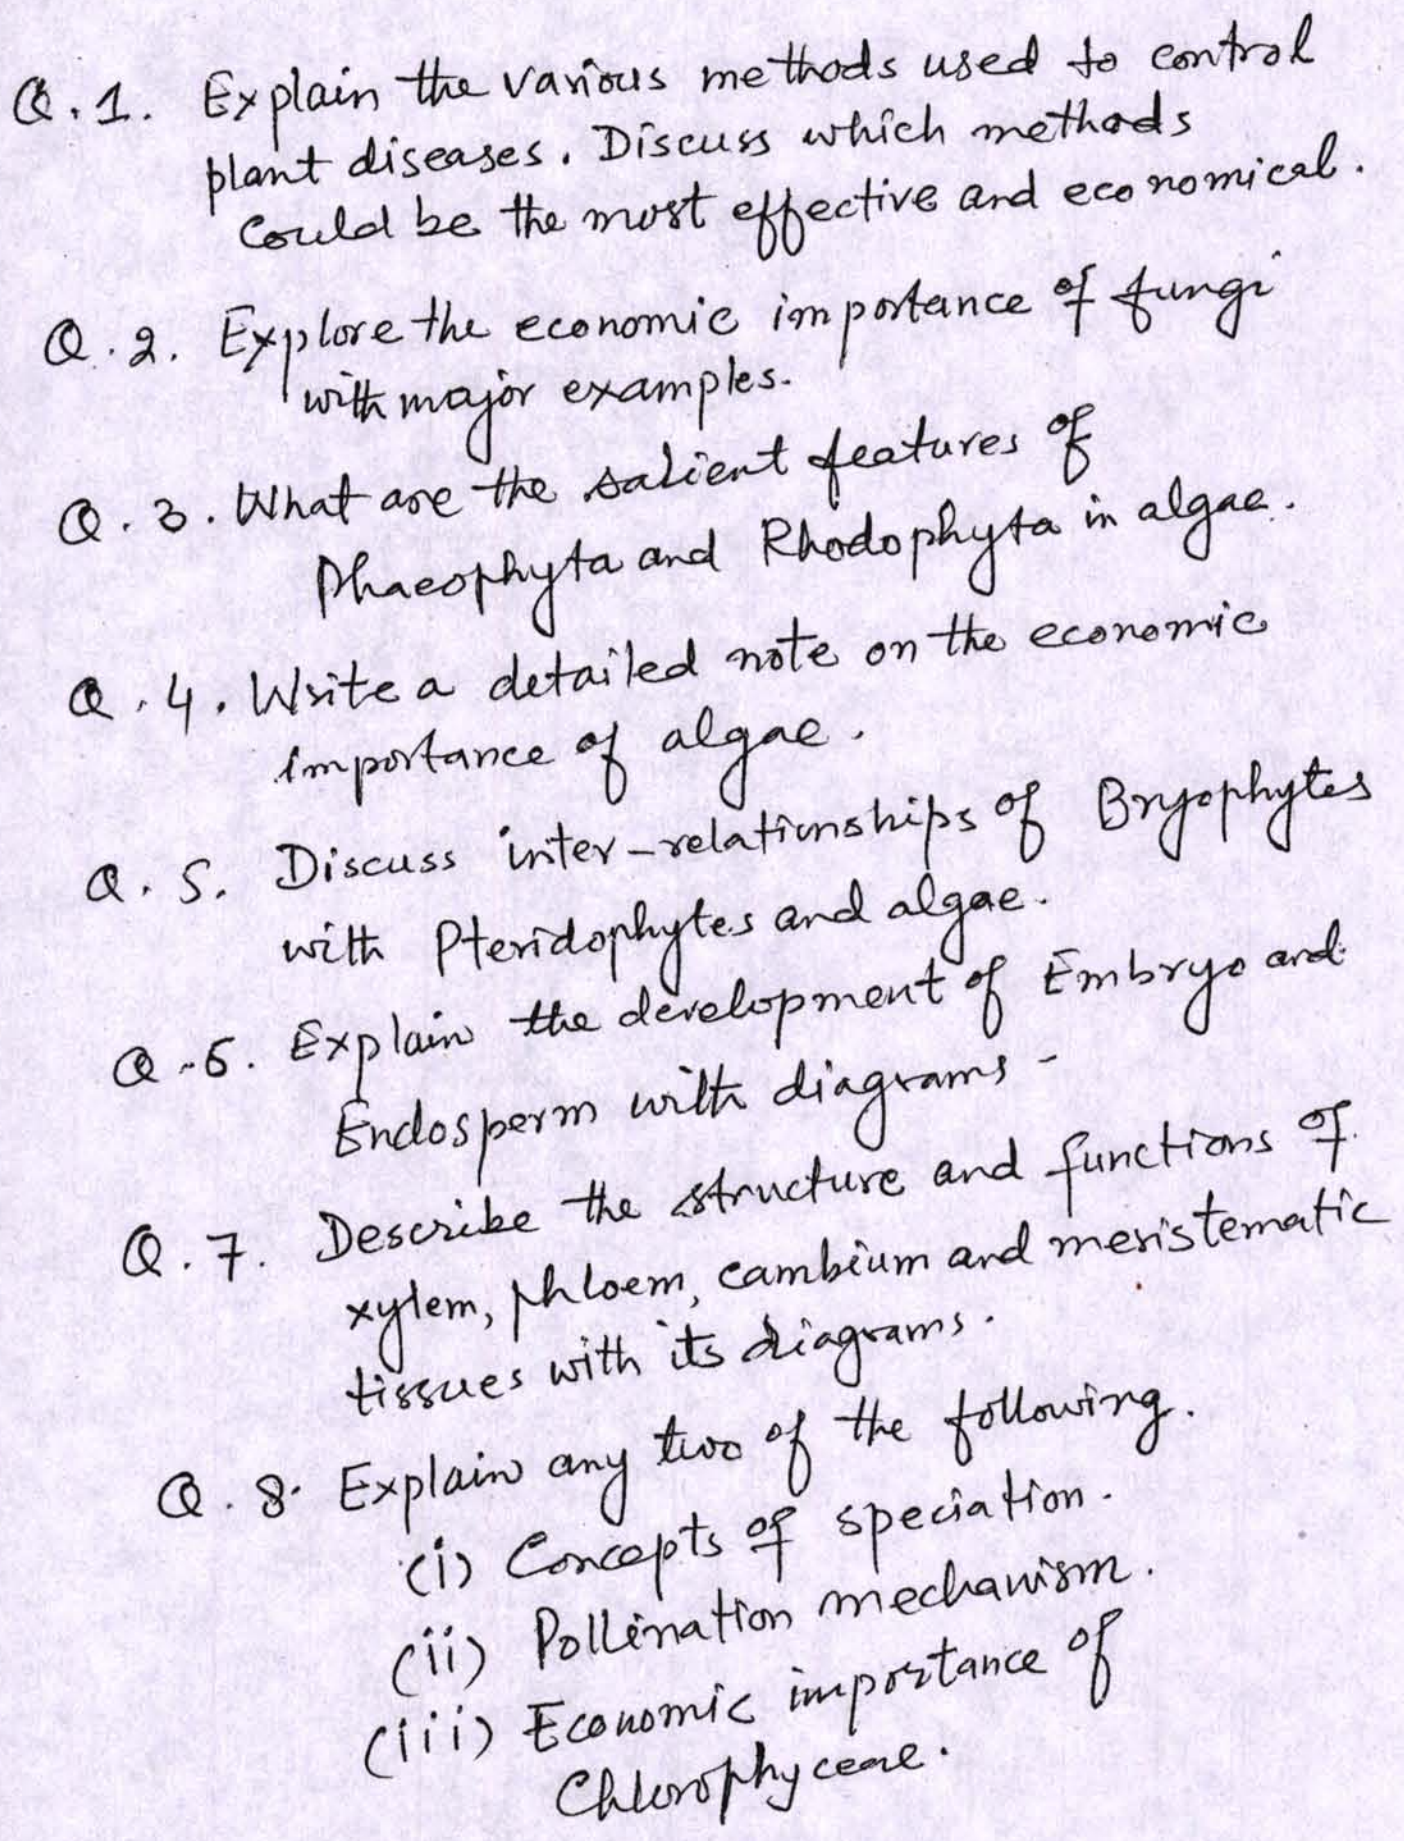 Q.1. Explain the various methods used to control
plant diseases. Discuss which methods
Could be the most effective and economical.
Q.2. Explore the economic importance of fungi
with major examples.
Q.3. What are the salient features of
Phaeophyta and Rhodophyta in algae.
Q.4. Write a detailed note on the economic
importance of algae.
Q.5. Discuss inter-relationships of Bryophytes
with Pteridophytes and algae.
Q.6. Explain the development of Embryo and
Endosperm with diagrams-
Q.7. Describe the structure and functions of
xylem, phloem, cambium and meristematic
tissues with its diagrams.
Q.8. Explain any two of the following.
(i) Concepts of speciation.
(ii) Pollination mechanism.
(iii) Economic importance of
Chlorophyceae.